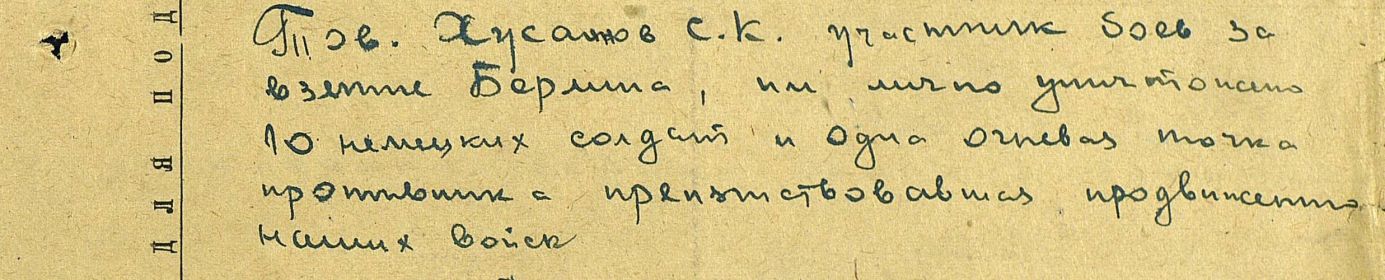 Тов. Хусаинов С.К. участник боев за
взятие Берлина, им лично уничтожено
10 немецких солдат и одна огневая точка
противника препятствовавшая продвижению
наших войск
ДЛЯ ПОД